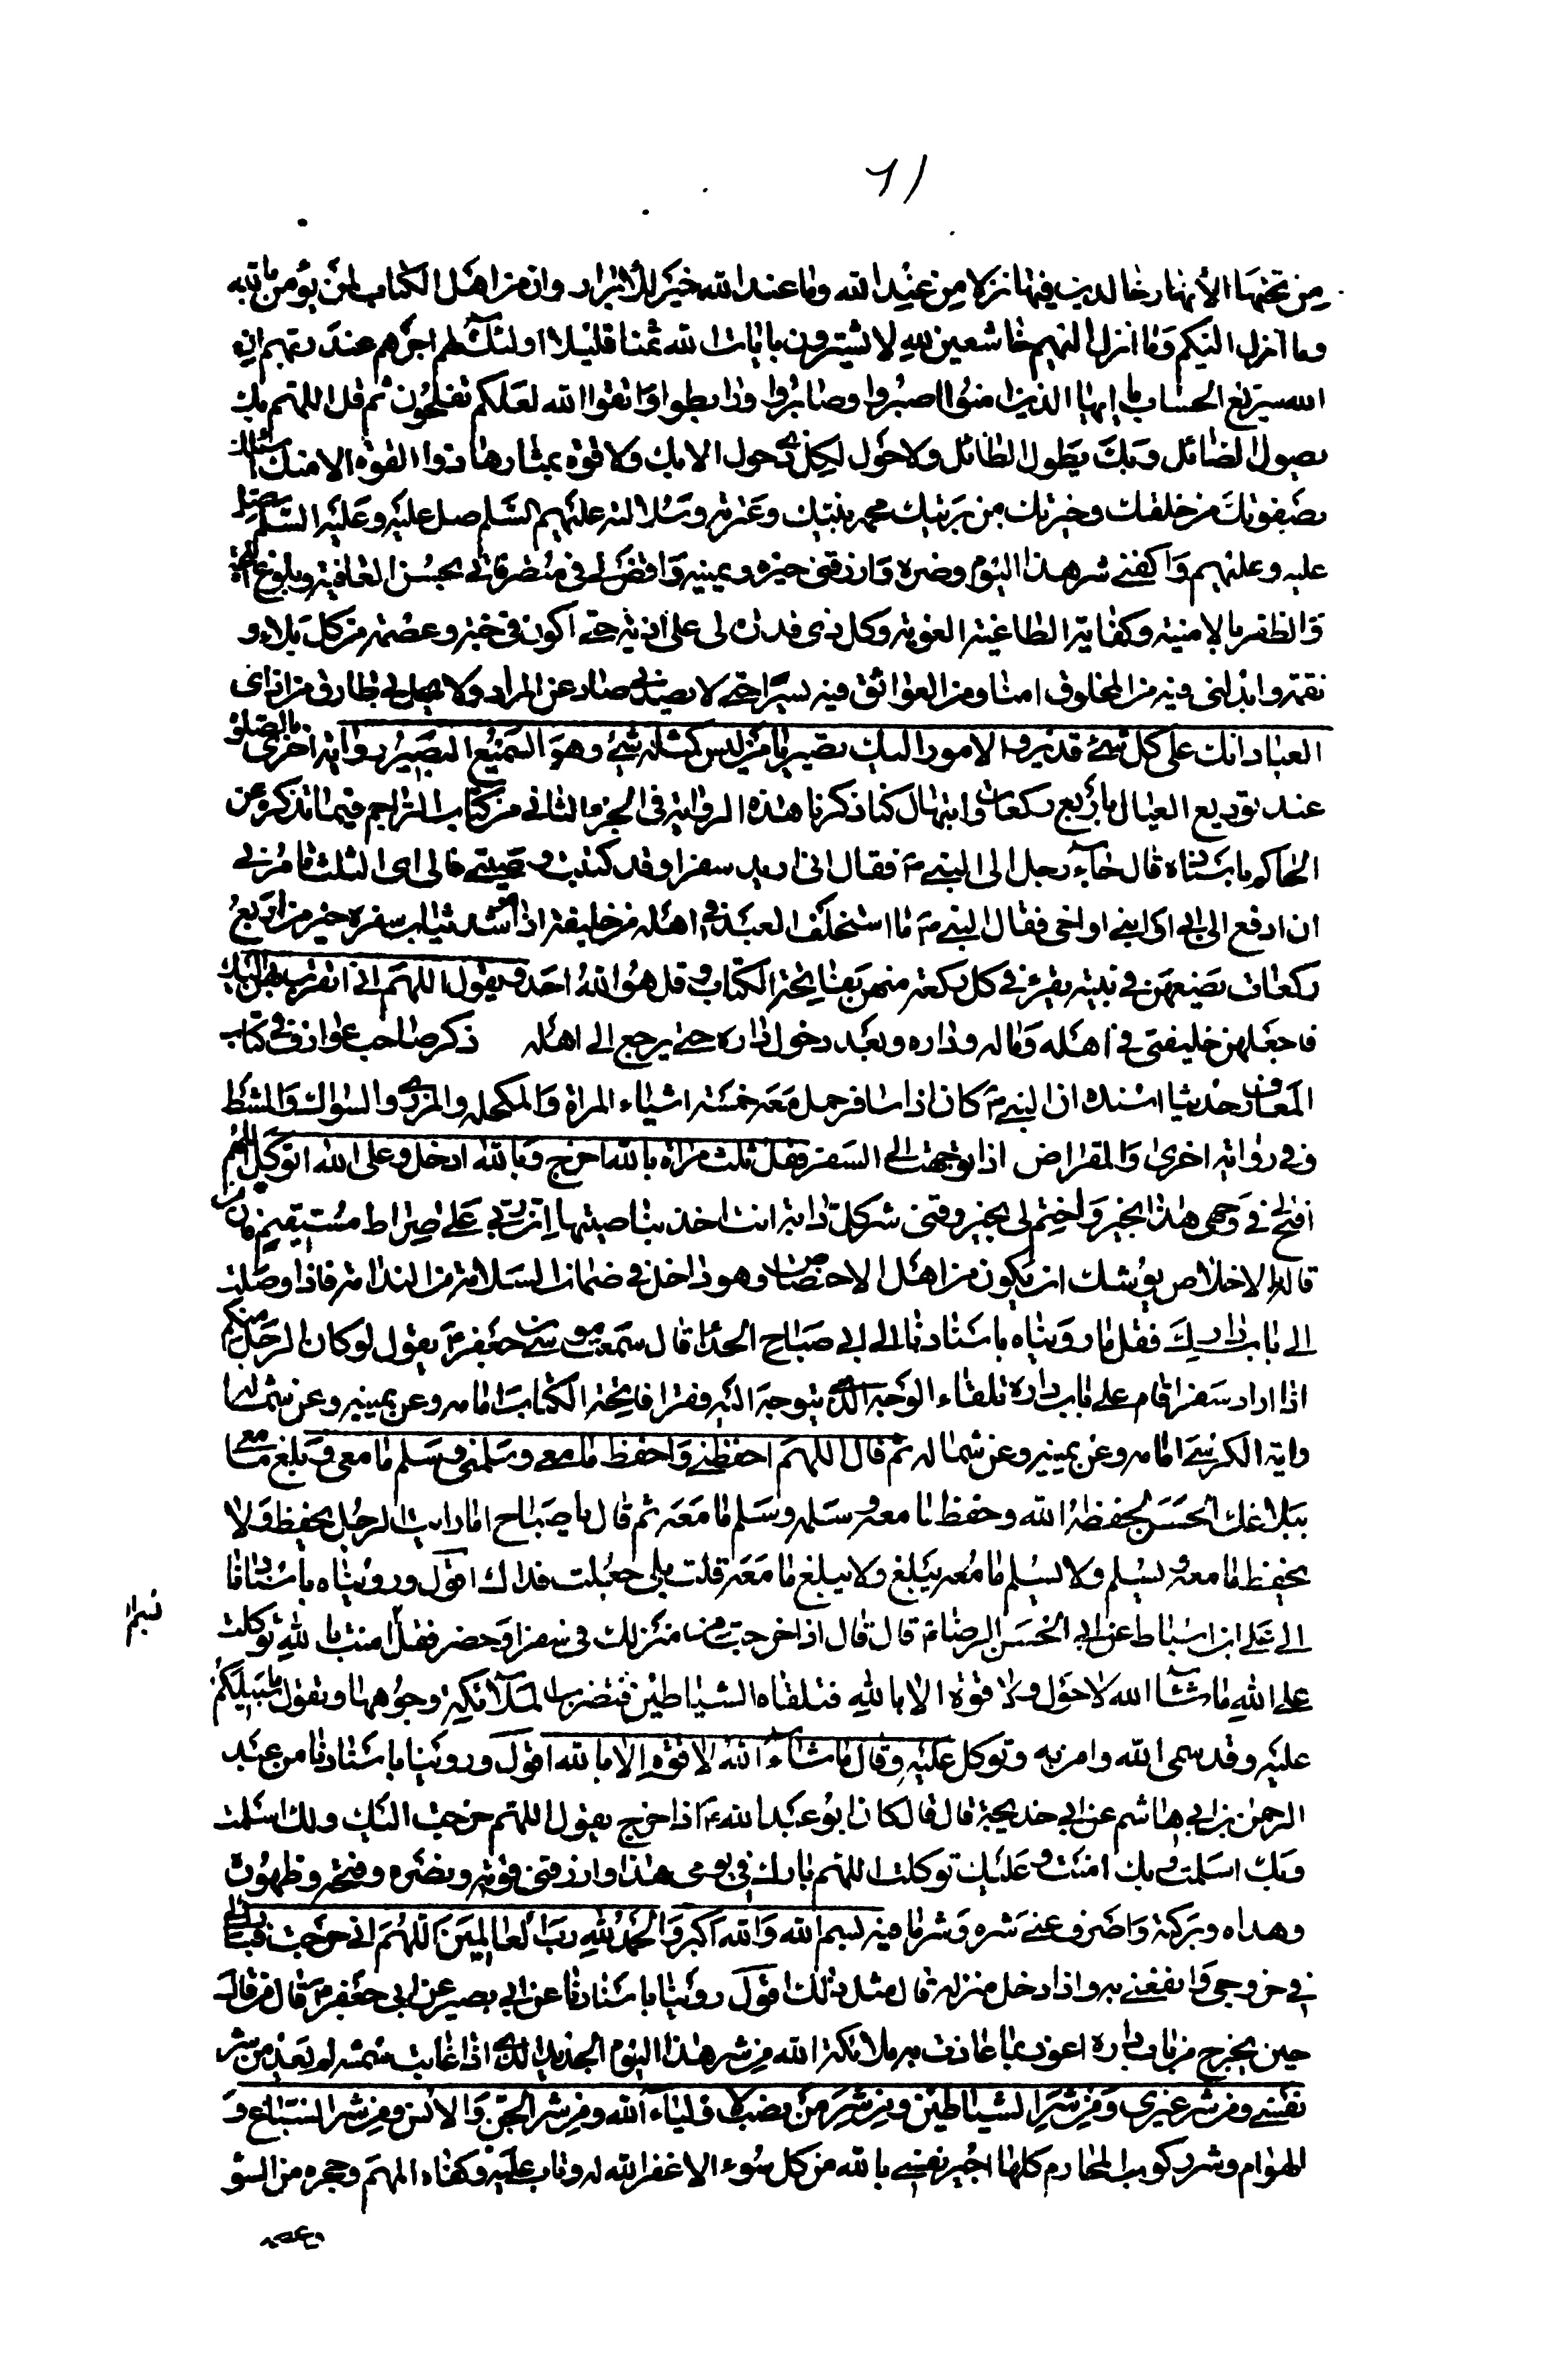 ٦١
من تحتها الأنهار خالدين فيها نزلا من عند الله وما عند الله خير للأبرار وان من اهل الكتاب لمن يؤمن بالله
وما انزل اليكم وما انزل اليهم خاشعين لله لا يشترون بايات الله ثمنا قليلا اولئك لهم اجرهم عند ربهم ان
الله سريع الحساب يا ايها الذين امنوا اصبروا وصابروا ورابطوا واتقوا الله لعلكم تفلحون ثم قل اللهم بك
يصول الصائل وبك يطول الطائل ولا حول لكل ذي حول الا بك ولا قوة يمتارها ذوا القوة الا منك اسئلك
بصفوتك من خلقك وخيرتك من بريتك محمد نبيك وعترته وسلالته عليهم السلم صل عليه وعليهم السلم صل
عليه وعليهم واكفني شر هذا اليوم وضره وارزقني خيره ويمنه واقض لي في متصرفاتي بحسن العافية وبلوغ المحبة
والظفر بالامنية وكفاية الطاغية الغوية وكل ذي قدرة لي على اذية حتى اكون في جنة وعصمة من كل بلاء و
نقمة وابدلني فيه من المخاوف امنا ومن العوائق فيه يسرا حتى لا يصدني صاد عن المراد ولا يحل بي طارق من اذى
العباد انك على كل شئ قدير والامور اليك تصير يا من ليس كمثله شئ وهو السميع البصير رواية اخرى بالصلوة
عند توديع العيال باربع ركعات وابتهال كنا ذكرنا هذه الرواية في الجزء الثاني من كتاب التراجم فيما نذكره عن
الحاكم باسناده قال جاء رجل الى النبي ص فقال اني اريد سفرا وقد كتبت وصيتي فالى اي الثلث تامرني
ان ادفع الى ابي او ابني او اخي فقال النبي ص ما استخلف العبد في اهله من خليفة اذا هو شد ثياب سفره خير من اربع
ركعات يضيعهن في بيته يقرء في كل ركعة منهن بفاتحة الكتاب وقل هو الله احد ويقول اللهم اني اتقرب بهن اليك
فاجعلهن خليفتي في اهله وماله وداره وبعد دخول داره حتى يرجع الى اهله ذكر صاحب عوارف في كتاب
المعارف حديثا اسنده ان النبي ص كان اذا سافر حمل معه خمسة اشياء المراة والمكحلة والمذرى والسواك والمشط
وفي رواية اخرى والمقراض اذا توجهت الى السفر فقل ثلث مرات بالله اخرج وبالله ادخل وعلى الله اتوكل اللهم
افتح في وجهي هذا بخير واختم لي بخير وقني شر كل دابة انت اخذ بناصيتها ان ربي على صراط مستقيم فان من
قالها بالاخلاص يوشك ان يكون من اهل الاختصاص وهو داخل في ضمان السلامة من الندامة فاذا وصلت
الى باب دارك فقل ما رويناه باسنادنا الى ابي صباح الحذا قال سمعت موسى بن جعفر ع يقول لو كان الرجل منكم
اذا اراد سفرا قام على باب داره تلقاء الوجه الذي يتوجه اليه فقرا فاتحة الكتاب امامه وعن يمينه وعن شماله
واية الكرسي امامه وعن يمينه وعن شماله ثم قال اللهم احفظني واحفظ ما معي وسلمني وسلم ما معي وبلغ ما معي
ببلاغك الحسن لحفظه الله وحفظ ما معه وسلمه وسلم ما معه ثم قال يا صباح اما رايت الرجل يحفظ ولا
يحفظ ما معه ويسلم ولا يسلم ما معه ويبلغ ولا يبلغ ما معه قلت بلى جعلت فداك اقول ورويناه باسنادنا
الى علي ابن اسباط عن ابي الحسن الرضا ع قال قال اذا خرجت من منزلك في سفر او حضر فقل امنت بالله توكلت
على الله ما شاء الله لا حول ولا قوة الا بالله فتلقاه الشياطين فتضرب الملائكة وجوهها وتقول ما سبيلكم
عليه وقد سمى الله وامن به وتوكل عليه وقال ما شاء الله لا قوة الا بالله اقول وروينا باسنادنا من عبد
الرحمن بن ابي هاشم عن ابي خديجة قال قال كان ابو عبد الله ع اذا خرج يقول اللهم خرجت اليك ولك اسلمت
وبك اسلمت وبك امنت وعليك توكلت اللهم بارك في يومي هذا وارزقني قوته ونصره وفتحه وطهوره
وهداه وبركته واصرف عني شره وشر ما فيه بسم الله والله اكبر والحمد لله رب العالمين اللهم اني خرجت فبارك لي
في خروجي وانفعني به واذا دخل منزله قال مثل ذلك اقول روينا باسنادنا عن ابي بصير عن ابي جعفر ع قال من قال
حين يخرج من باب داره اعوذ بما عاذت به ملائكة الله من شر هذا اليوم الجديد الذي اذا غابت شمسه لم يعد من شر
نفسي ومن شر غيري ومن شر الشياطين ومن شر من نصب لاولياء الله ومن شر الجن والانس ومن شر السباع و
الهوام وشر ركوب المحارم كلها اجير نفسي بالله من كل سوء الا غفر الله له وتاب عليه وكفاه المهم وحجزه عن السوء
وعصمه